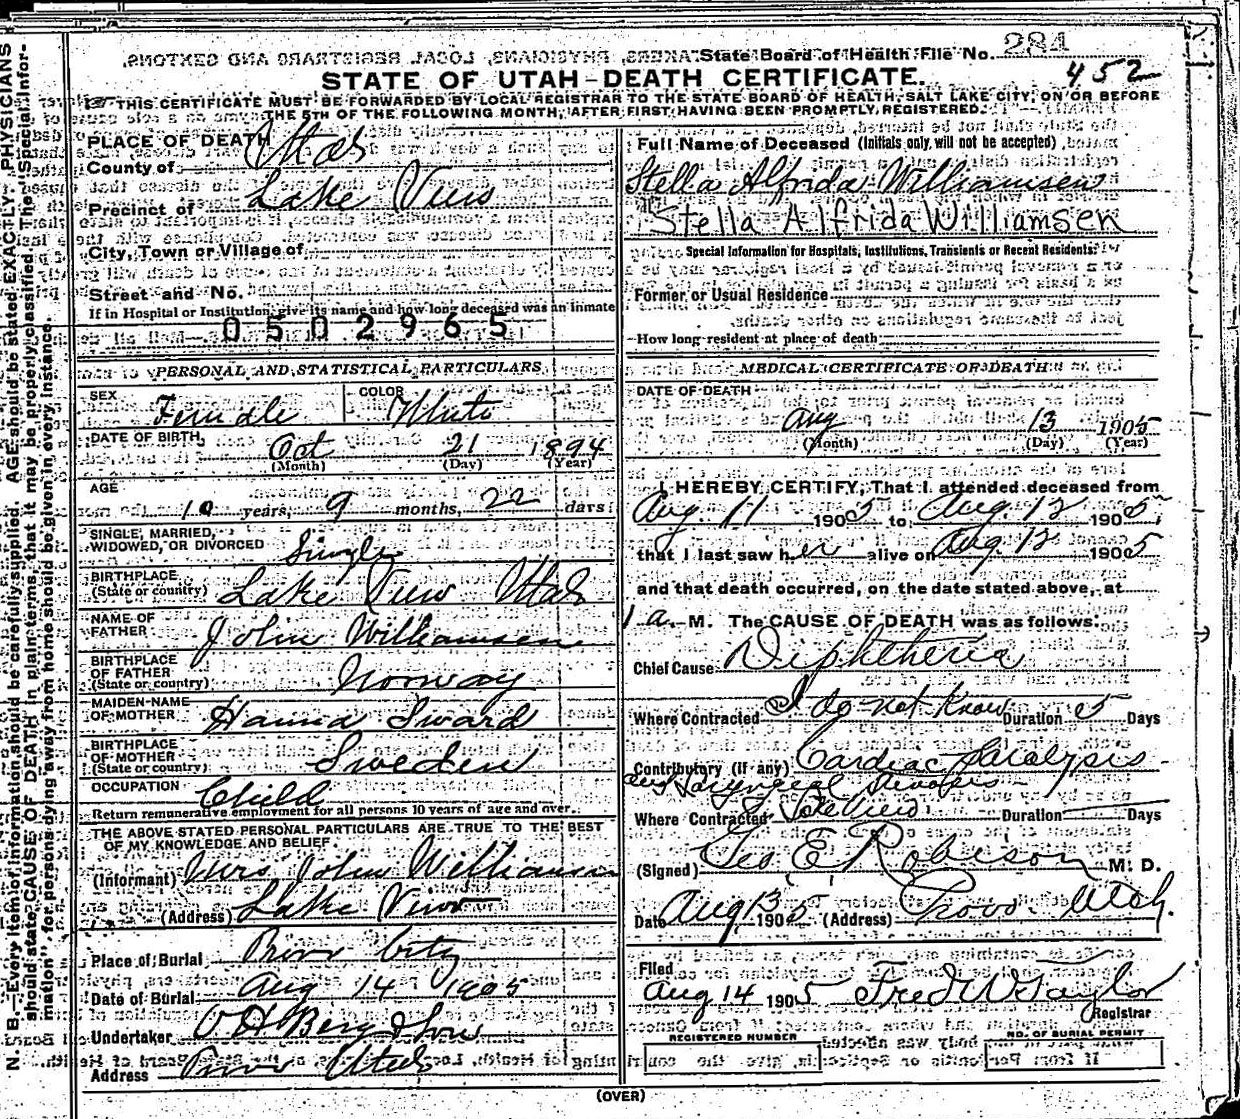 State Board of Health File No. 284
452
STATE OF UTAH-DEATH CERTIFICATE.
THIS CERTIFICATE MUST BE FORWARDED BY LOCAL REGISTRAR TO THE STATE BOARD OF HEALTH, SALT LAKE CITY, ON OR BEFORE
THE 5TH OF THE FOLLOWING MONTH, AFTER FIRST HAVING BEEN PROMPTLY REGISTERED.
PLACE OF DEATH
County of Utah
Precinct of Lake View
City, Town or Village of
Street and No.
If in Hospital or Institution, give its name and how long deceased was an inmate
0502965
PERSONAL AND STATISTICAL PARTICULARS
SEX Female COLOR White
DATE OF BIRTH Oct 21 1894
(Month) (Day) (Year)
AGE
10 years, 9 months, 22 days
SINGLE, MARRIED,
WIDOWED, OR DIVORCED Single
BIRTHPLACE
(State or country) Lake View Utah
NAME OF
FATHER John Williamsen
BIRTHPLACE
OF FATHER
(State or country) Norway
MAIDEN-NAME
OF MOTHER Hanna Sward
BIRTHPLACE
OF MOTHER
(State or country) Sweden
OCCUPATION Child
Return remunerative employment for all persons 10 years of age and over.
THE ABOVE STATED PERSONAL PARTICULARS ARE TRUE TO THE BEST
OF MY KNOWLEDGE AND BELIEF
(Informant) Mrs. John Williamsen
(Address) Lake View
Place of Burial Provo City
Date of Burial Aug 14 1905
Undertaker O H Berg & Son
Address Provo Utah
Full Name of Deceased (Initials only, will not be accepted)
Stella Alfrida Williamsen
Stella Alfrida Williamsen
Special Information for Hospitals, Institutions, Transients or Recent Residents:
Former or Usual Residence
How long resident at place of death
MEDICAL CERTIFICATE OF DEATH
DATE OF DEATH
Aug 13 1905
(Month) (Day) (Year)
I HEREBY CERTIFY, That I attended deceased from
Aug. 11 1905 to Aug. 12 1905
that I last saw her alive on Aug. 12 1905
and that death occurred, on the date stated above, at
1 a. M. The CAUSE OF DEATH was as follows:
Chief Cause Diphtheria
Where Contracted I do not know Duration 5 Days
Contributory (if any) Cardiac Paralysis
also Laryngeal Stenosis
Where Contracted Lake View Duration Days
(Signed) Geo E. Robison M. D.
Date Aug 13 1905 (Address) Provo Utah.
Filed
Aug 14 1905 Fred W Taylor
Registrar
REGISTERED NUMBER
NO. OF BURIAL PERMIT
(OVER)
N. B.—Every item of information should be carefully supplied. AGE should be stated EXACTLY. PHYSICIANS
should state CAUSE OF DEATH in plain terms, that it may be properly classified. The "Special Infor-
mation" for persons dying away from home should be given in every instance.